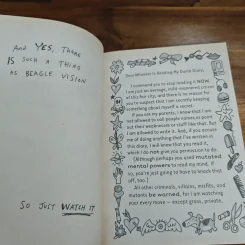 And YES, THERE
IS SUCH A THING
AS BEAGLE VISION
SO JUST WATCH IT
Dear Whoever Is Reading My Dumb Diary,
I command you to stop reading it NOW.
I am just an average, mild-mannered citizen
of this fair city, and there is no reason for
you to suspect that I am secretly keeping
something about myself a secret.
If you ask my parents, I know that I am
not allowed to call people names or point
out their weaknesses or stuff like that. But
I am allowed to write it. And, if you accuse
me of doing anything that I've written in
this diary, I will know that you read it,
which I do not give you permission to do.
(Although perhaps you said mutated
mental powers to read my mind. If
so, you're just going to have to knock that
off, too.)
All other criminals, villains, misfits, and
mutants be warned, for I am watching
your every move — except gross, private,